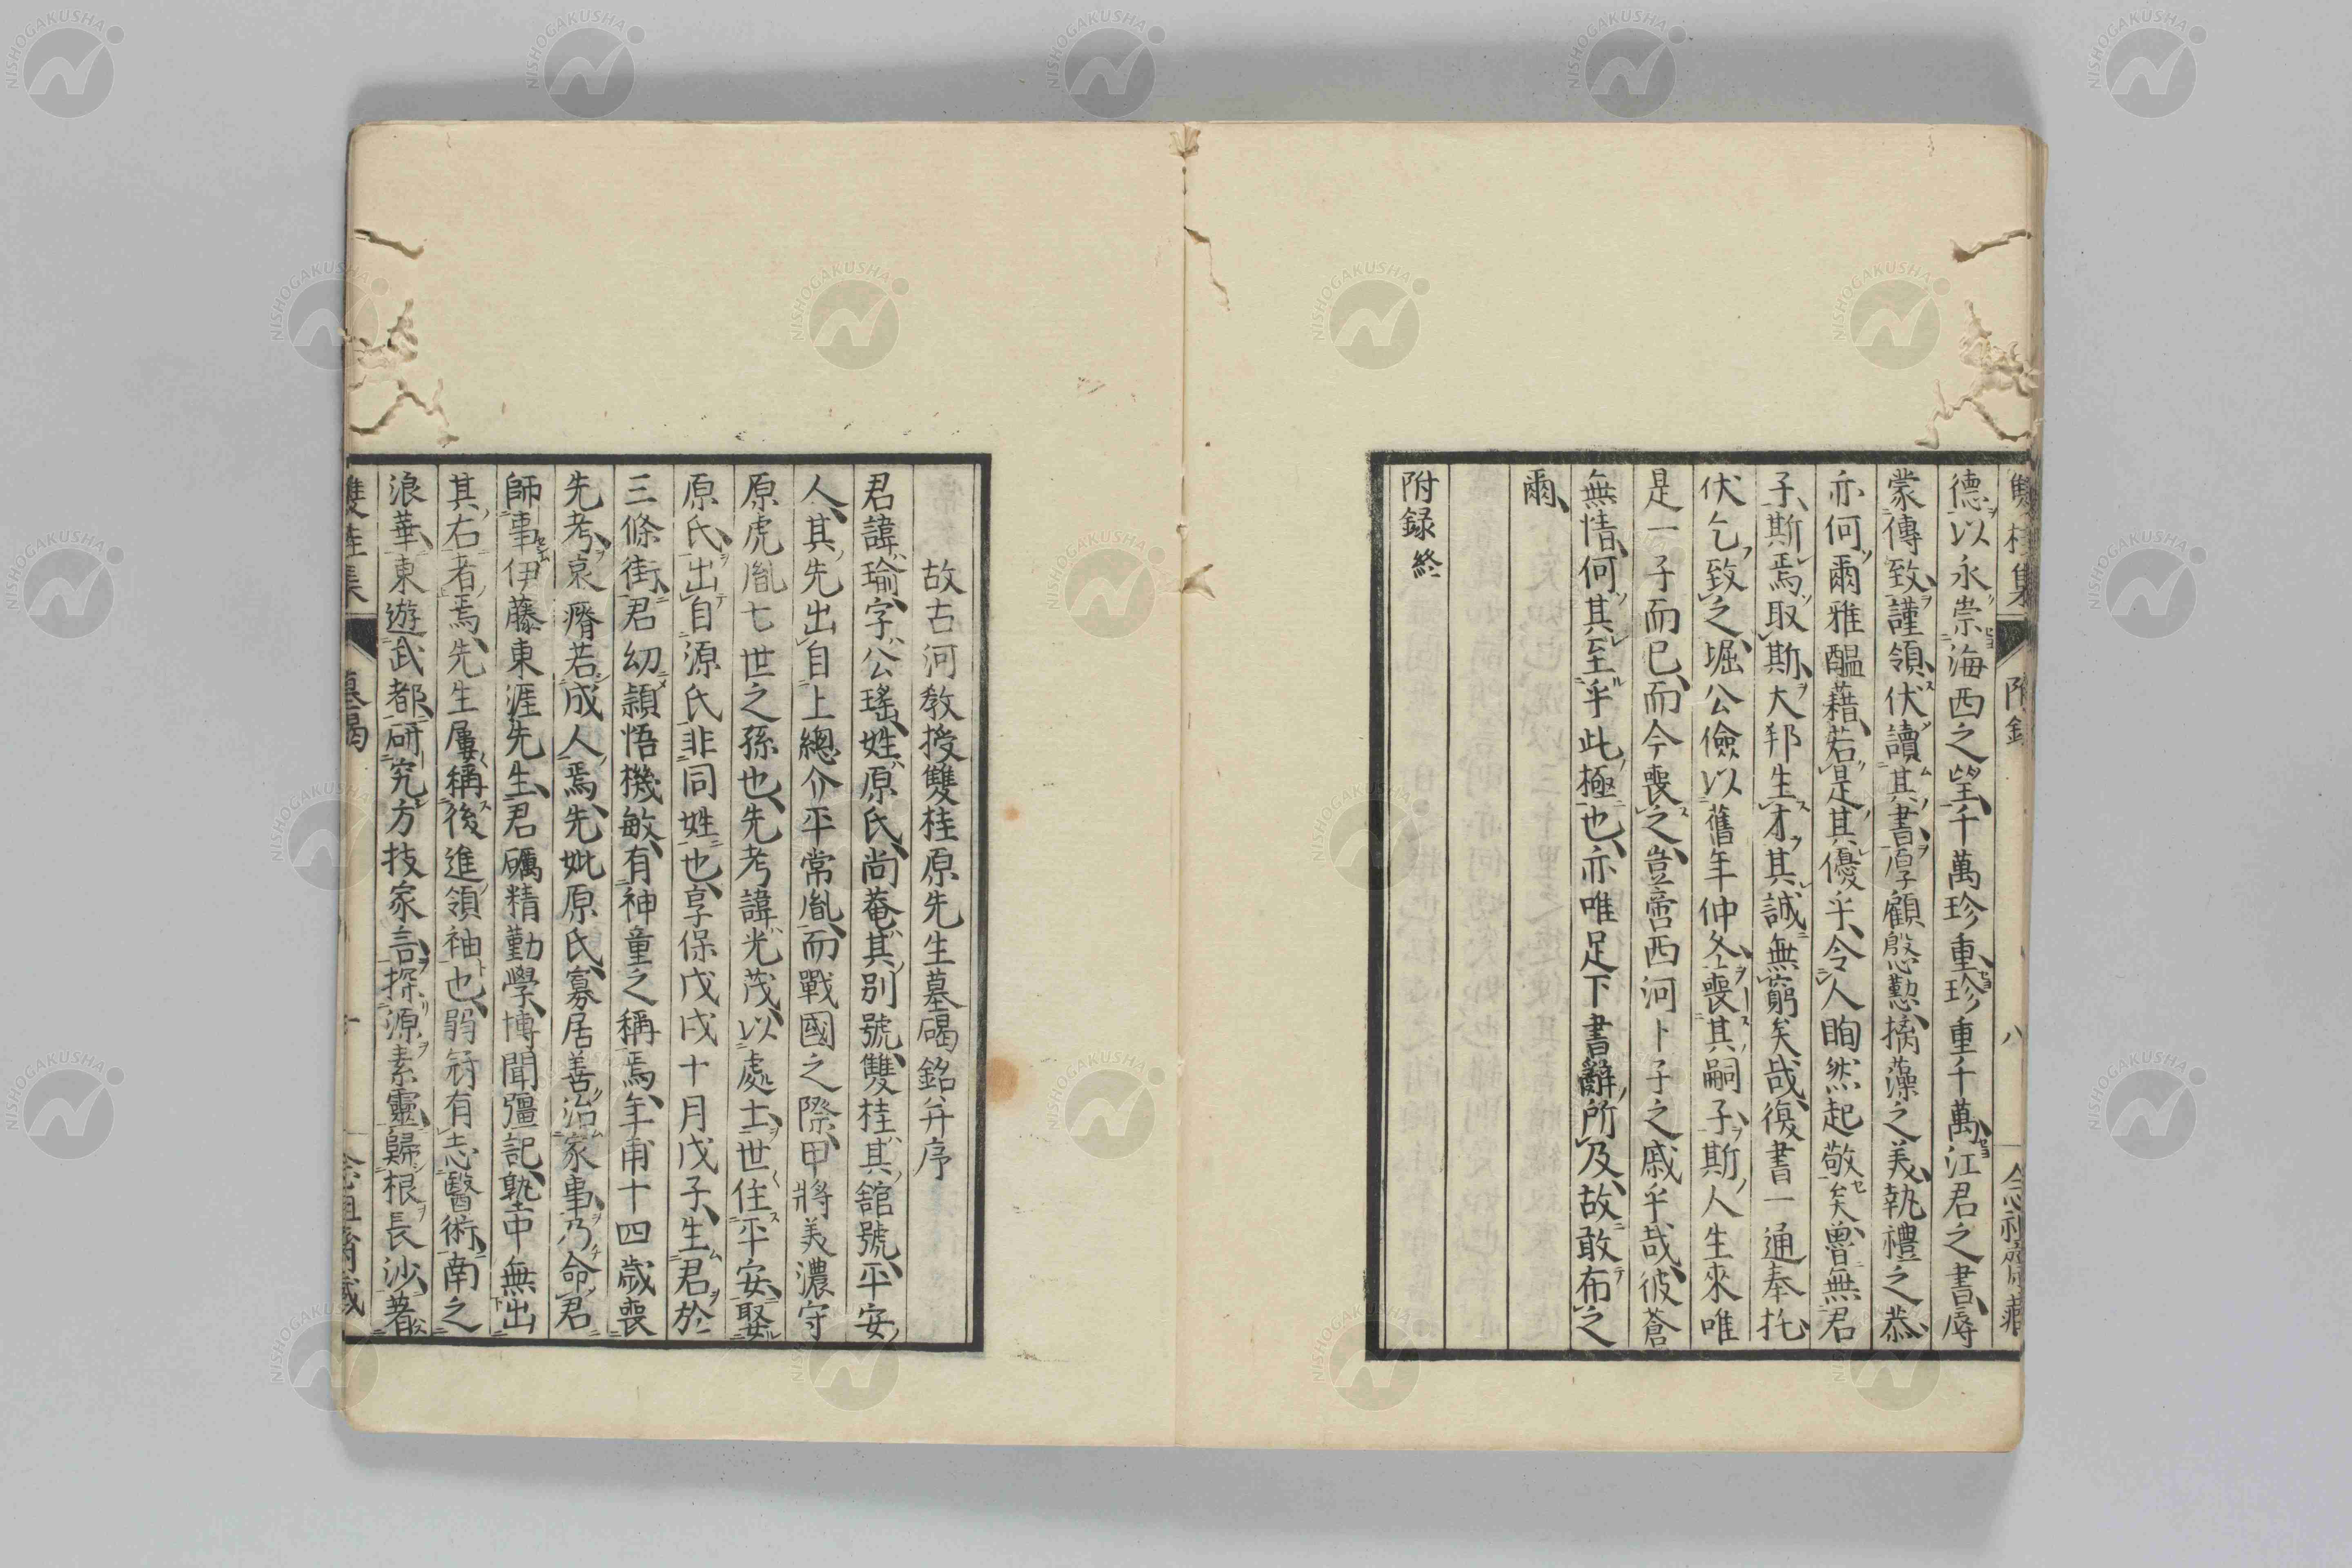 德以永崇海西之望千萬珍重珍重千萬江君之書辱
蒙傳致謹領伏讀其書厚顧慇懃摛藻之美執禮之恭
亦何爾雅醞藉若是其優乎令人眴然起敬矣曾無君
子斯焉取斯大邦生才其誠無窮矣哉復書一通奉托
伏乞致之堀公儉以舊年仲冬喪其嗣子斯人生來唯
是一子而已而今喪之豈啻西河卜子之戚乎哉彼蒼
無情何其至乎此極也亦唯足下書辭所及故敢布之
爾
附録終
雙桂集 附録 八
故古河教授雙桂原先生墓碣銘并序
君諱瑜字公瑤姓原氏尚菴其別號雙桂其舘號平安
人其先出自上總介平常胤而戰國之際甲將美濃守
原虎胤七世之孫也先考諱光茂以處士世住平安娶
原氏出自源氏非同姓也享保戊戌十月戊子生君於
三條街君幼穎悟機敏有神童之稱焉年甫十四歲喪
先考哀瘠若成人焉先妣原氏寡居善治家事乃命君
師事伊藤東涯先生君礪精勤學博聞彊記塾中無出
其右者焉先生屢稱後進領袖也弱冠有志醫術南之
浪華東遊武都研究方技家言探源素靈歸根長沙著
雙桂集 墓碣
NISHOGAKUSHA